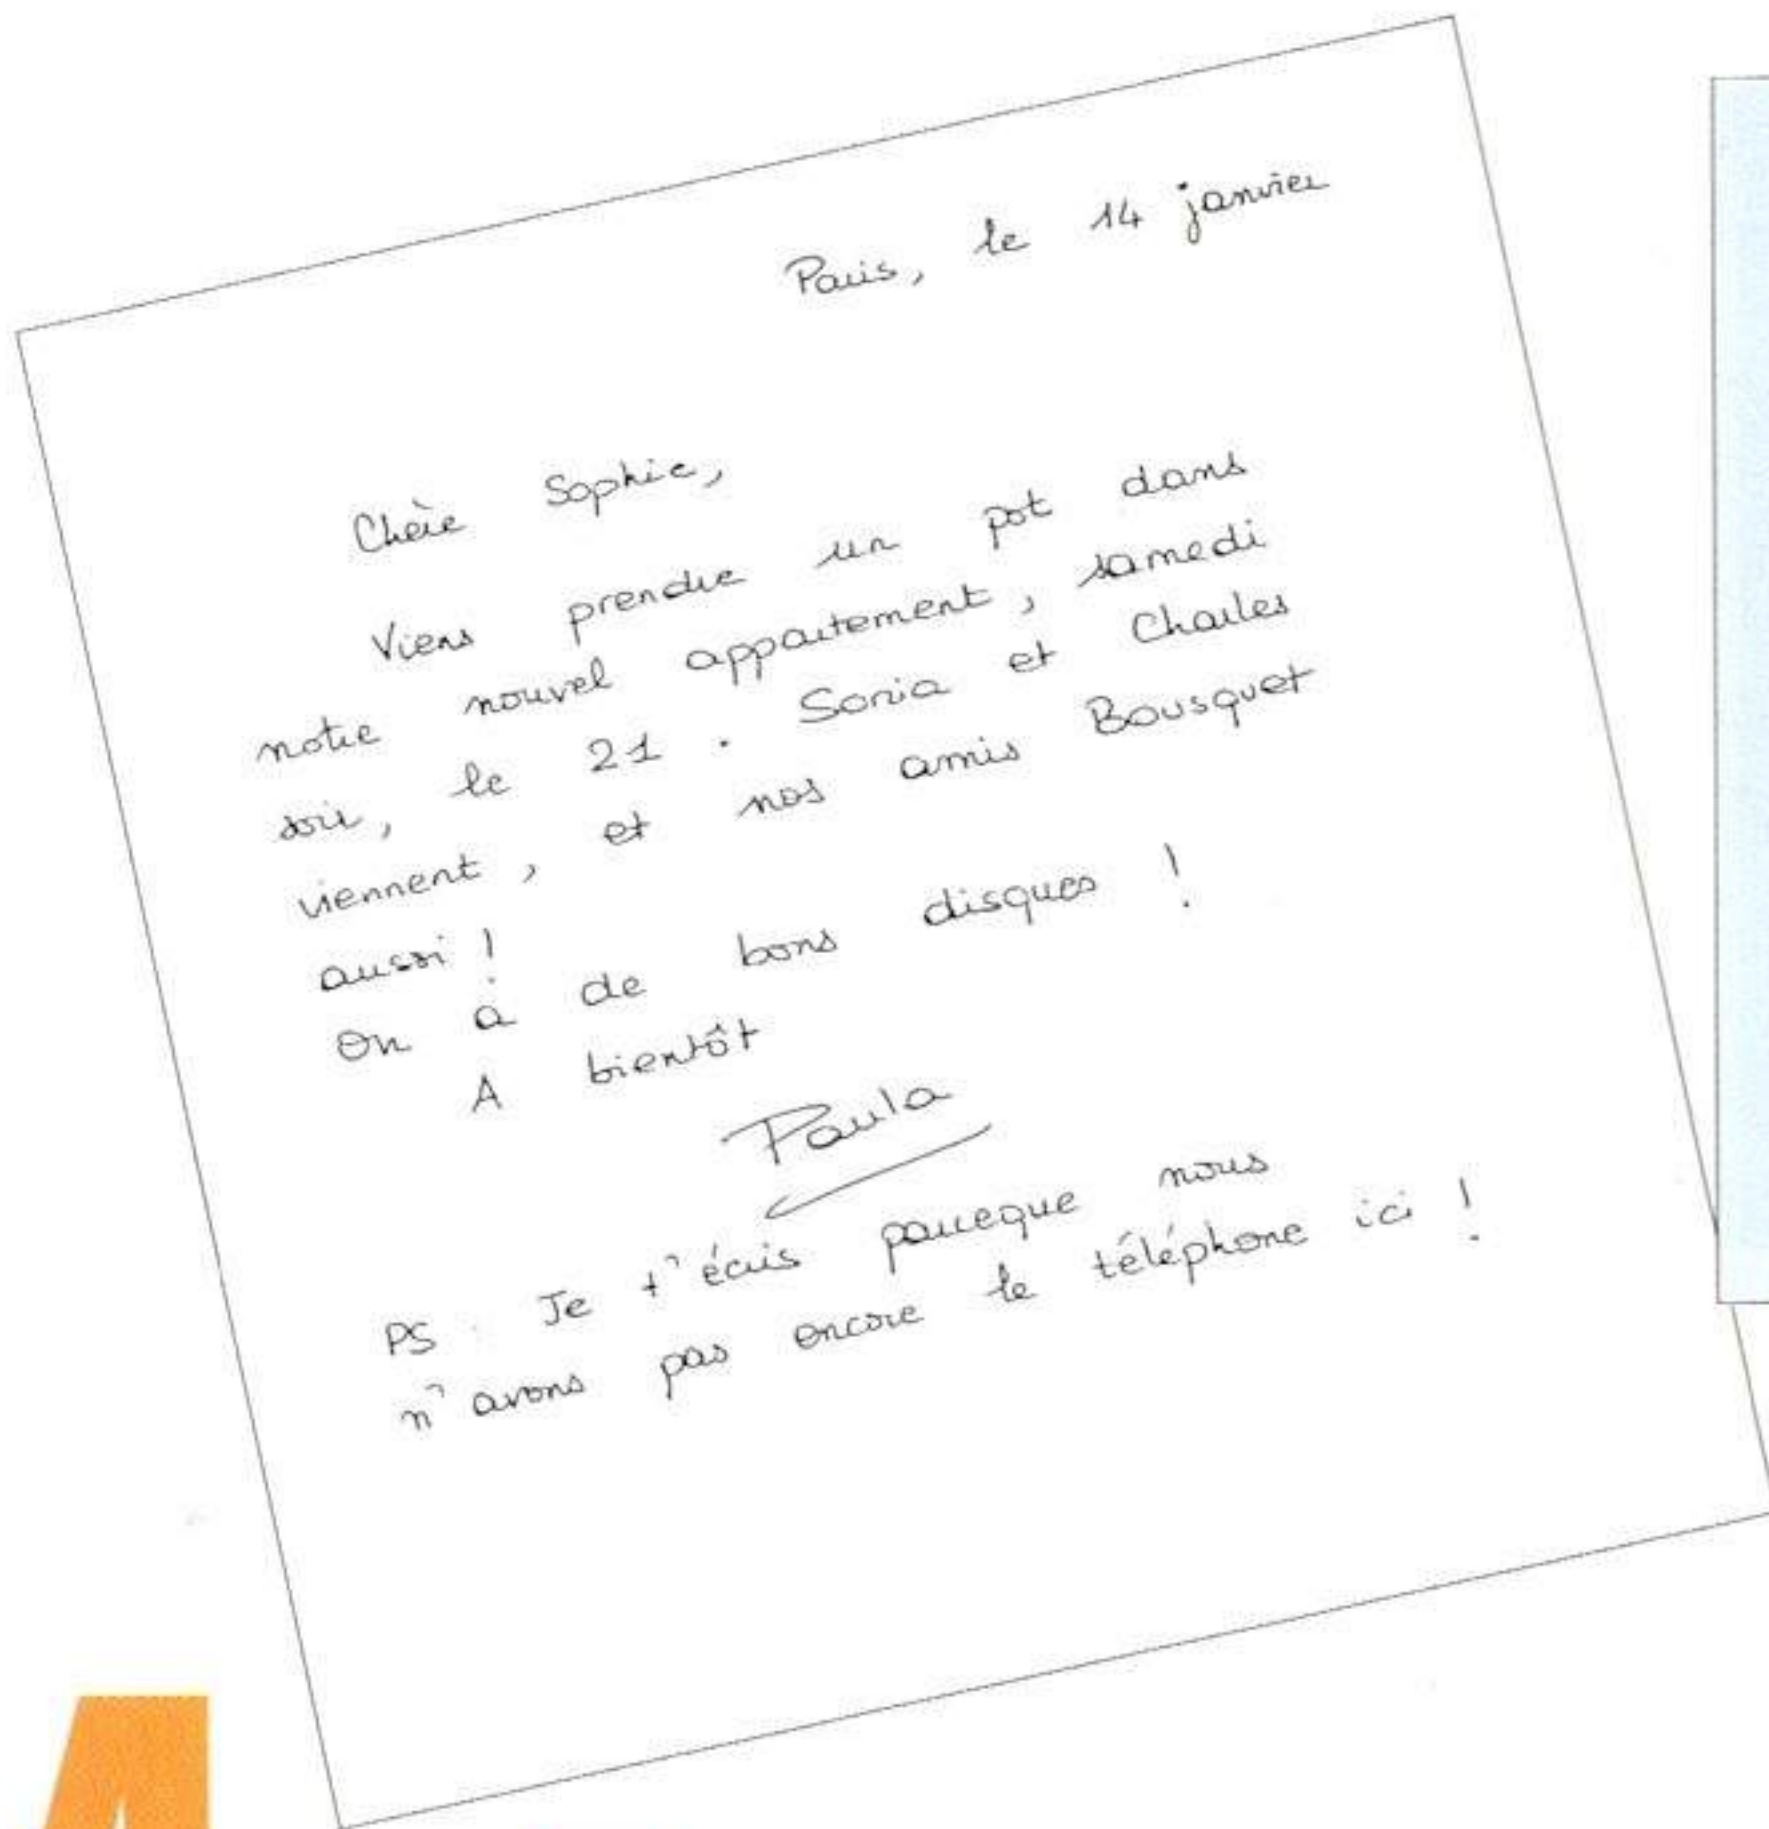 Paris, le 14 janvier
Chère Sophie,
Viens prendre un pot dans
notre nouvel appartement, samedi
soir, le 21. Sonia et Charles
viennent, et nos amis Bousquet
aussi !
On a de bons disques !
A bientôt
Paula
PS : Je t'écris parceque nous
n'avons pas encore le téléphone ici !